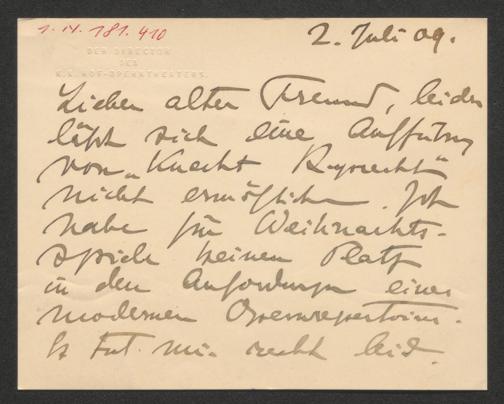 1. IV. 181.410
2. Juli 09.
DER DIRECTOR
DES
K.K. HOF-OPERNTHEATERS.
Lieber alter Freund, leider
läßt sich eine Aufführung
von „Knecht Ruprecht"
nicht ermöglichen. Ich
habe für Weihnachts-
spiele keinen Platz
in den Anforderungen eines
modernen Opernrepertoires.
Es tut mir recht leid.